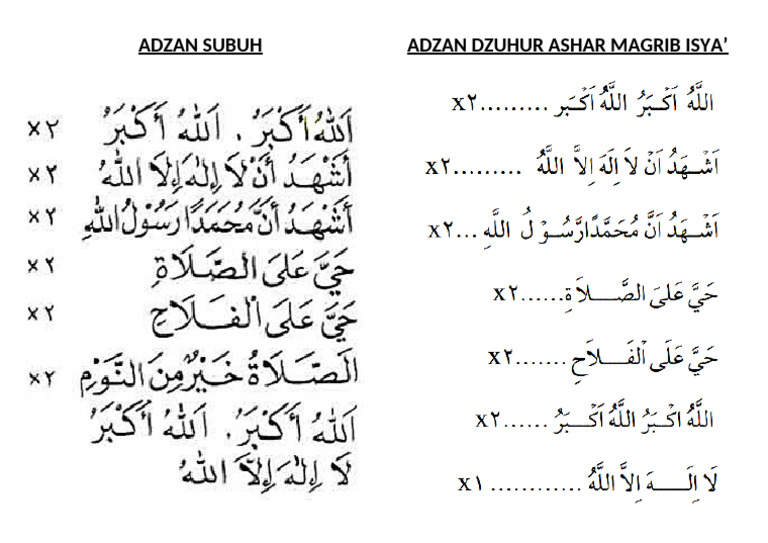 ADZAN SUBUH
اَللهُ أَكْبَرُ . اَللهُ أَكْبَرُ x٢
أَشْهَدُ أَنْ لَا إِلٰهَ إِلَّا اللهُ x٢
أَشْهَدُ أَنَّ مُحَمَّدًا رَسُوْلُ اللهِ x٢
حَيَّ عَلَى الصَّلَاةِ x٢
حَيَّ عَلَى الْفَلَاحِ x٢
اَلصَّلَاةُ خَيْرٌ مِنَ النَّوْمِ x٢
اَللهُ أَكْبَرُ . اَللهُ أَكْبَرُ
لَا إِلٰهَ إِلَّا اللهُ
ADZAN DZUHUR ASHAR MAGRIB ISYA’
اللَّهُ اَكْبَرُ اللَّهُ اَكْبَر .........x٢
اَشْهَدُ اَنْ لاَ اِلَهَ اِلاَّ اللَّهُ .........x٢
اَشْهَدُ اَنَّ مُحَمَّدًا رَّسُوْلُ اللَّهِ ...x٢
حَيَّ عَلىَ الصَّلاَةِ......x٢
حَيَّ عَلَى الْفَلاَحِ .......x٢
اللَّهُ اكْبَرُ اللَّهُ اَكْبَرُ ......x٢
لَا اِلَهَ اِلاَّ اللَّهُ ............ x١